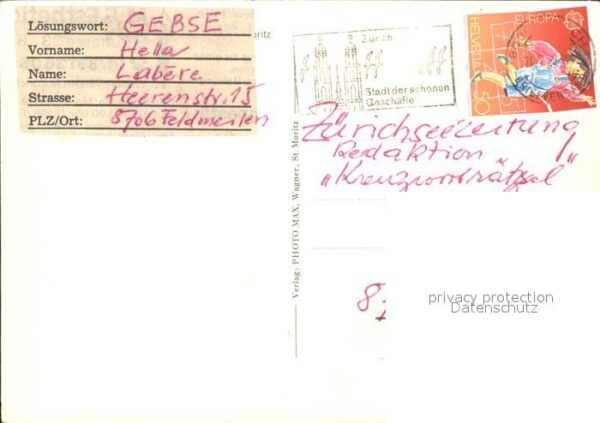 Lösungswort: GEBSE
Vorname: Hella
Name: Labère
Strasse: Heerenstr. 15
PLZ/Ort: 8706 Feldmeilen
oritz
Zürich
Stadt der schönen
Geschäfte
EUROPA
HELVETIA
Zürichseezeitung
Redaktion
"Kreuzworträtsel"
8
Verlag: PHOTO MAX, Wagner, St. Moritz
privacy protection
Datenschutz